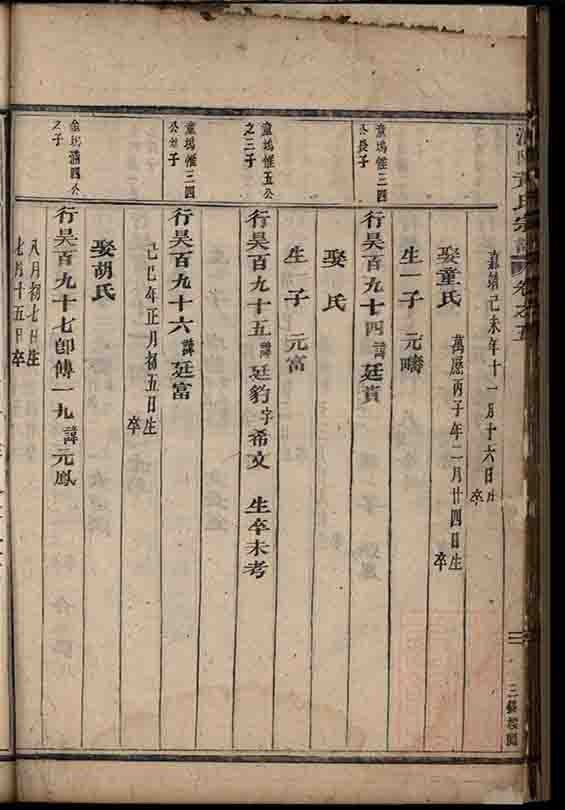 氏宗譜 卷之五
三
嘉靖己未年十一月十六日生
卒
娶童氏 萬厯丙子年二月廿四日生
卒
生一子 元疇
童塢惟三四公長子
行昊百九十四諱廷貴
娶 氏
生一子 元富
童塢惟五公之三子
行昊百九十五諱廷豹字希文 生卒未考
童塢惟三四公 子
行昊百九十六諱廷富
己巳年正月初五日生
卒
娶胡氏
金塢滿四公之子
行昊百九十七卽傳一九諱元鳳
八月初七日生
七月十五日卒